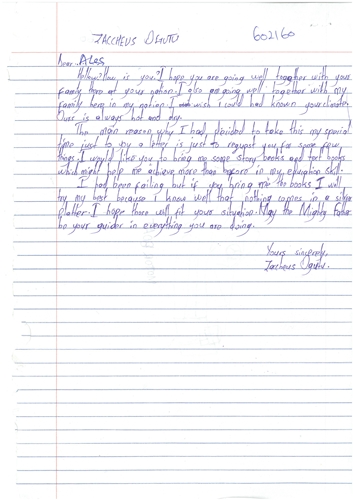 ZACCHEUS OGUTU 602160
Dear Ales
Hellow! How is you? I hope you are going well together with your
family there at your nation. I also am going well together with my
family here in my nation. I wish I could had known your climate.
Ours is always hot and dry.
The main reason why I had decided to take this my special
time just to a letter is just to request you for some few
things. I would like you to bring me some story books and text books
which might help me achieve more than before in my education skill.
I had been failing but if you bring me the books I will
try my best because I know well that nothing comes in a silver
platter. I hope there will fit your situation. May the Mighty Father
be your guider in everything you are doing.
Yours sincerely,
Zaccheus Ogutu.